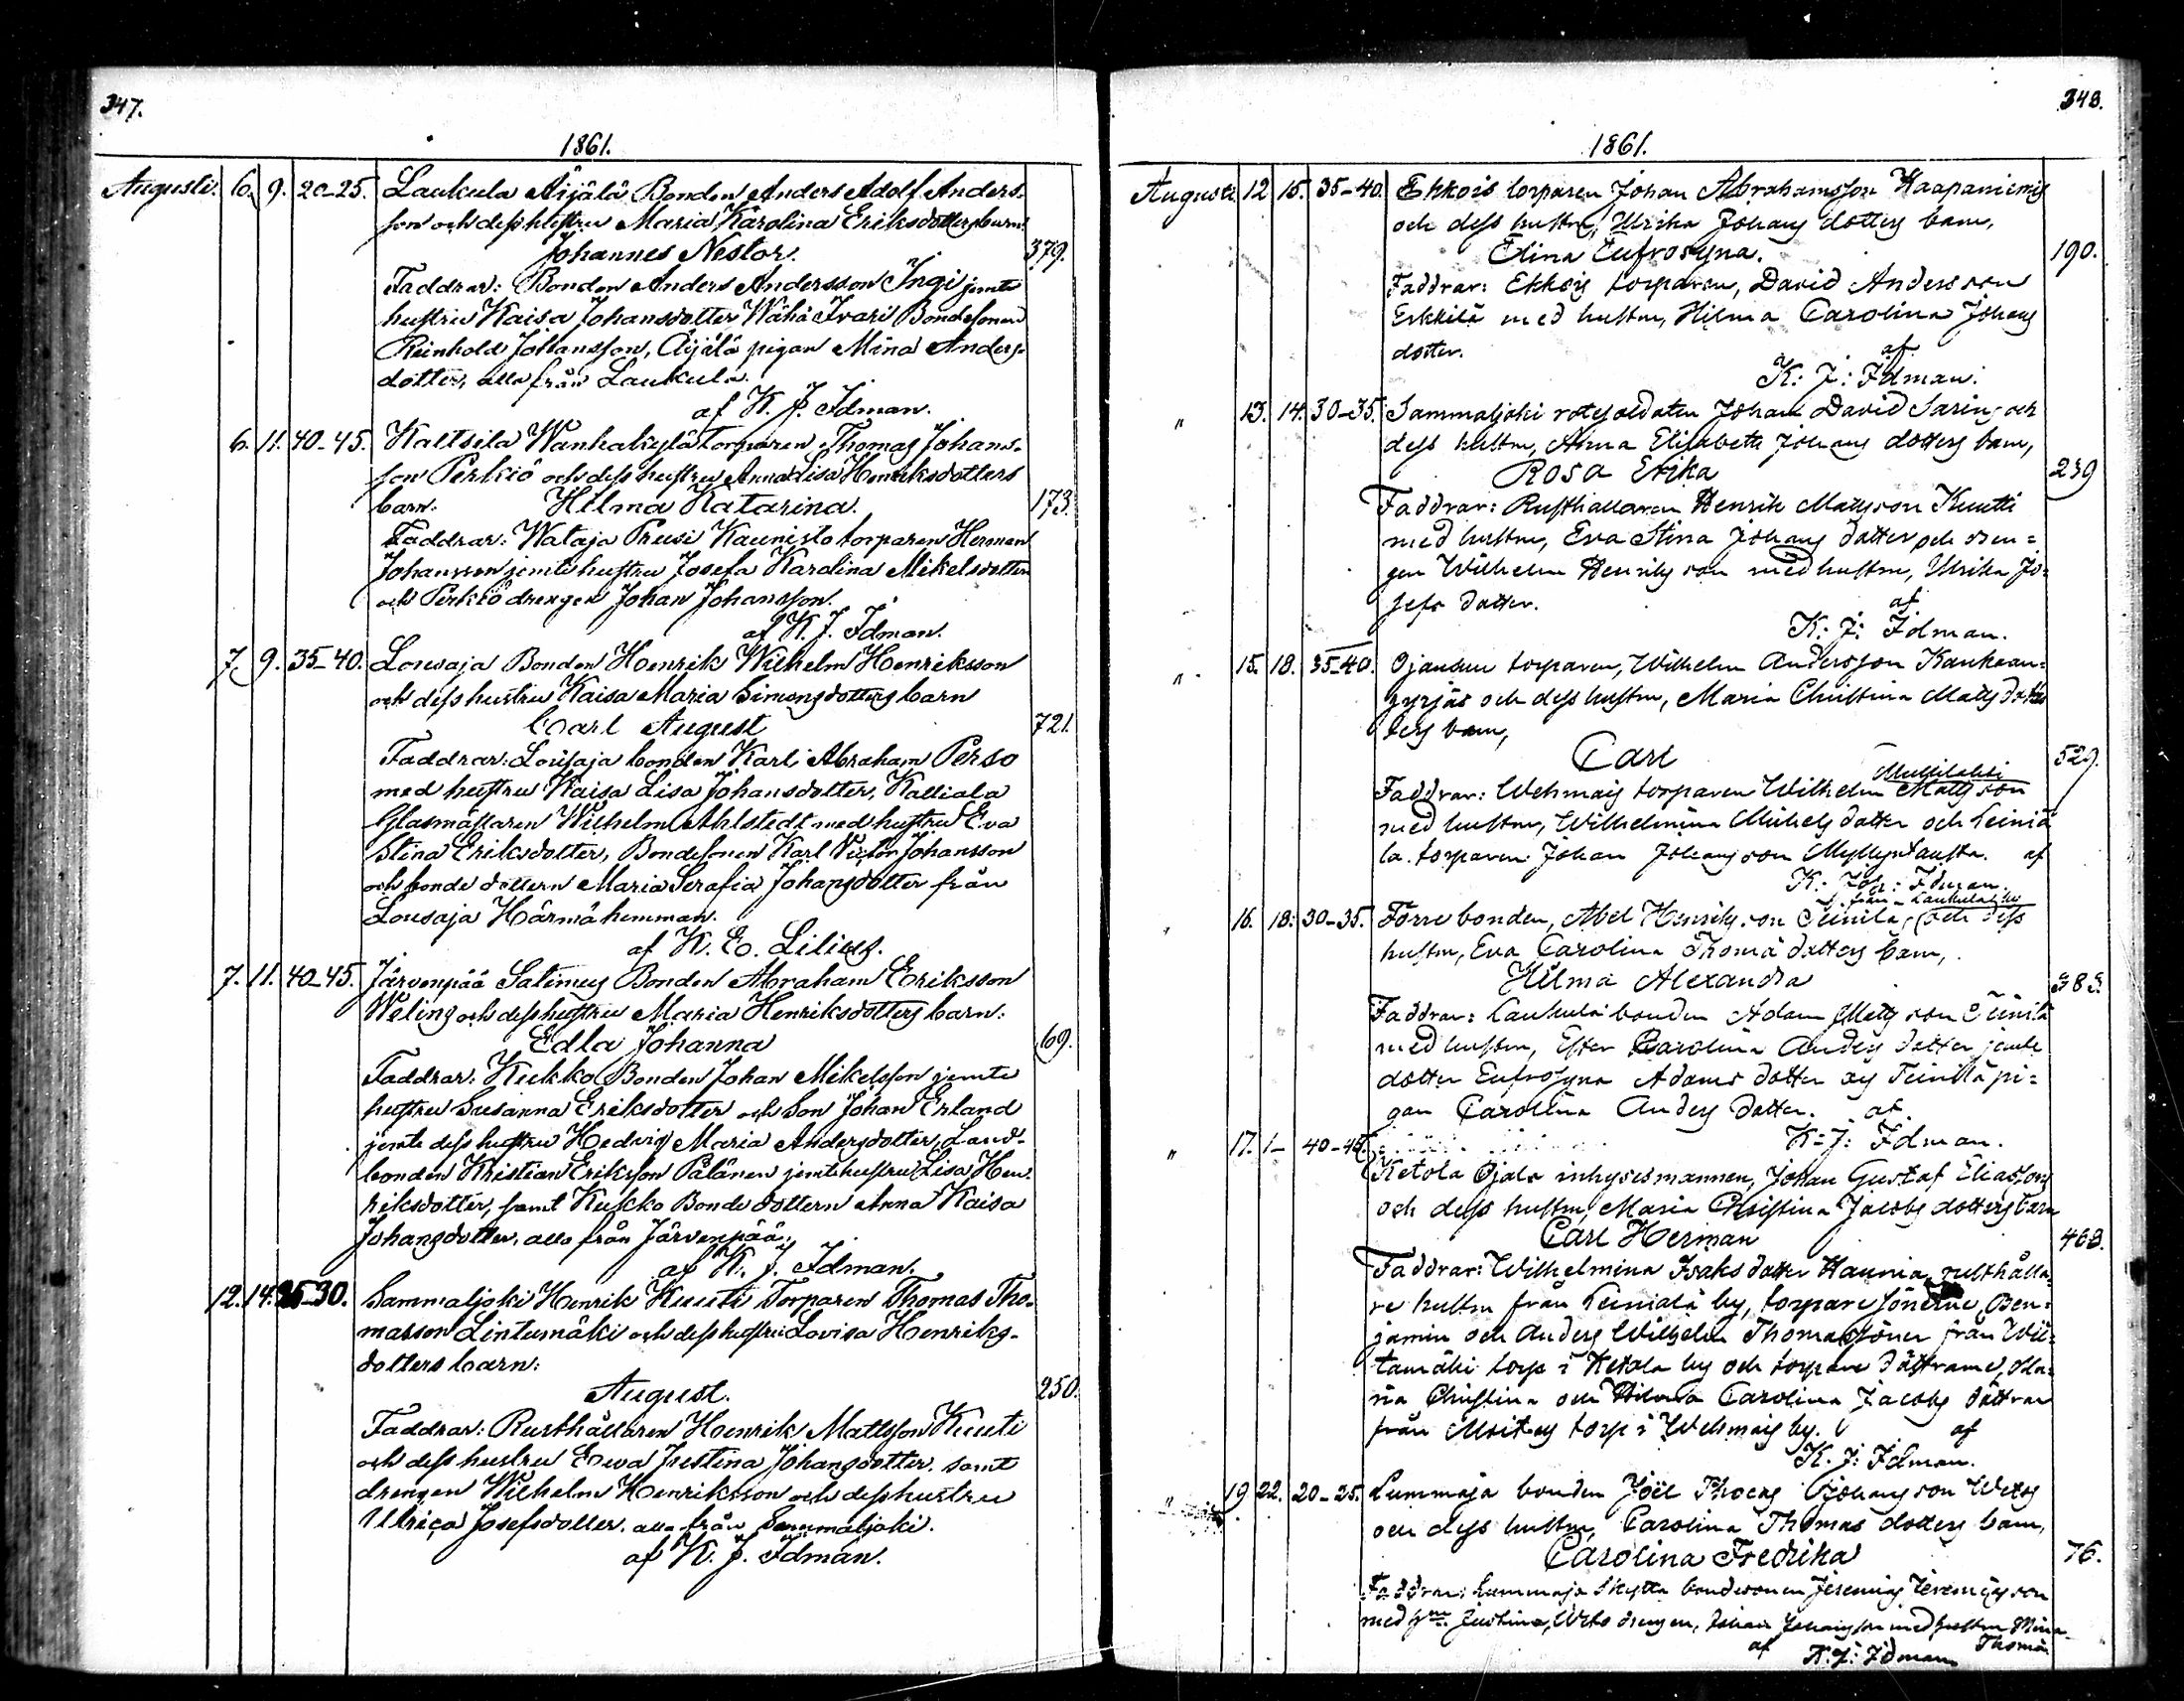 347.
1861.
Augusti. 6. 9. 20-25. Laukula Äijälä Bonden Anders Adolf Anders-
son och dess hustru Maria Karolina Eriksdotters barn:
Johannes Nestor. 379.
Faddrar: Bonden Anders Andersson Ingi jemte
hustru Kaisa Johansdotter Wähä Ivari Bondesonen
Reinhold Johansson, Äijälä pigan Mina Anders-
dotter, alla från Laukula.
af K. J. Idman.
6. 11. 40-45. Kaltsila Wanhakylä torparen Thomas Johans-
son Perkiö och dess hustru Anna Lisa Henriksdotters
barn: Hilma Katarina. 173.
Faddrar: Wataja Prusi Kaunisto torparen Herman
Johansson jemte hustru Josefa Karolina Mikelsdotter
och Perkiö drengen Johan Johansson.
af K. J. Idman.
7. 9. 35-40. Lousaja Bonden Henrik Wilhelm Henriksson
och dess hustru Kaisa Maria Simonsdotters barn
Carl August 721.
Faddrar: Lousaja bonden Karl Abraham Perso
med hustru Kaisa Lisa Johansdotter, Kalliala
Glasmästaren Wilhelm Ahlstedt med hustru Eva
Stina Eriksdotter, Bondesonen Karl Victor Johansson
och bonde dottern Maria Serafia Johansdotter från
Lousaja Härmä hemman.
af K. E. Lilius.
7. 11. 40-45. Järvenpää Salimus Bonden Abraham Eriksson
Weling och dess hustru Maria Henriksdotters barn:
Edla Johanna 69.
Faddrar: Kukko Bonden Johan Mikelsson jemte
hustru Susanna Eriksdotter och Son Johan Erland
jemte dess hustru Hedvig Maria Andersdotter, Land-
bonden Kristian Eriksson Pälänen jemte hustru Lisa Hen-
riksdotter, samt Kukko Bonde dottern Anna Kaisa
Johansdotter, alla från Järvenpää.
af K. J. Idman.
12. 14. 25-30. Sammaljoki Henrik Kuuti Torparen Thomas Tho-
masson Lintumäki och dess hustru Lovisa Henriks-
dotters barn:
August. 250.
Faddrar: Rusthållaren Henrik Mattsson Kuuti
och dess hustru Ewa Justina Johansdotter. samt
drengen Wilhelm Henriksson och dess hustru
Ulrica Josefsdotter. alla från Sammaljoki.
af K. J. Idman.
348.
1861.
Augusti. 12 15. 35-40. Ekkois torparen Johan Abrahamsson Haapaniemis
och dess hustru, Ulrika Johans dotters barn,
Elina Eufrosyna. 190.
Faddrar: Ekkois torparen, David Andersson
Erkkilä med hustru, Hilma Carolina Johans
dotter. af
K: J: Idman.
" 13. 14. 30-35. Sammaljoki rotesoldaten Johan David Sarin, och
dess hustru, Anna Elisabeth Johans dotters barn,
Rosa Erika 239
Faddrar: Rusthållaren Henrik Mattsson Kuutti
med hustru, Eva Stina Johans dotter och dren=
gen Wilhelm Henriksson med hustru, Ulrika Jo=
sefs dotter. af
K: J: Idman.
" 15. 18. 35-40. Ojansuu torparen, Wilhelm Andersson Kankaan=
pyrjäs och dess hustru, Maria Christina Matts dot
ters barn,
Carl 529.
Faddrar: Wehmais torparen Wilhelm Mattsson
med hustru, Wilhelmina Michels dotter och Leiniä
la. torparen Johan Johansson Myllyntausta. af
K: Joh: Idman.
från Laukula by
16. 18. 30-35. Torre bonden, Abel Henriksson Teinilä, och dess
hustru, Eva Carolina Thomä dotters barn,
Hilma Alexandra 383.
Faddrar: Laukula bonden Adam Mattsson Teinilä
med hustru, Ester Carolina Anders dotter jemte
dotter Eufrosyna Adams dotter och Teinilä pi=
gan Carolina Anders dotter. af.
K: J: Idman.
" 17. 1- 40-45.
Ketola Ojala inhysesmannen, Johan Gustaf Eliassons
och dess hustru, Maria Christina Jacobs dotters barn
Carl Herman 468.
Faddrar: Wilhelmina Isaks dotter Haunia, rusthålla=
re hustru från Leiniälä by, torpare sönerne, Ben=
jamin och Anders Wilhelm Thomas söner från Wii=
tamäki torp i Ketola by och torpare döttrarne, Ma=
ria Christina och Hilma Carolina Jacobs döttrar
från torp i Wehmais by. af
K. J: Idman.
" 19 22. 20-25. Lummaja bonden Joel Johansson
och dess hustru, Carolina Thomas dotters barn,
Carolina Fredrika 76.
Faddrar: Lummaja Skyttä bondesonen Jeremias Jeremiasson
med hru Justina, drengen, Johan Johansson med hustru Mina
Thomä
af K: J: Idman